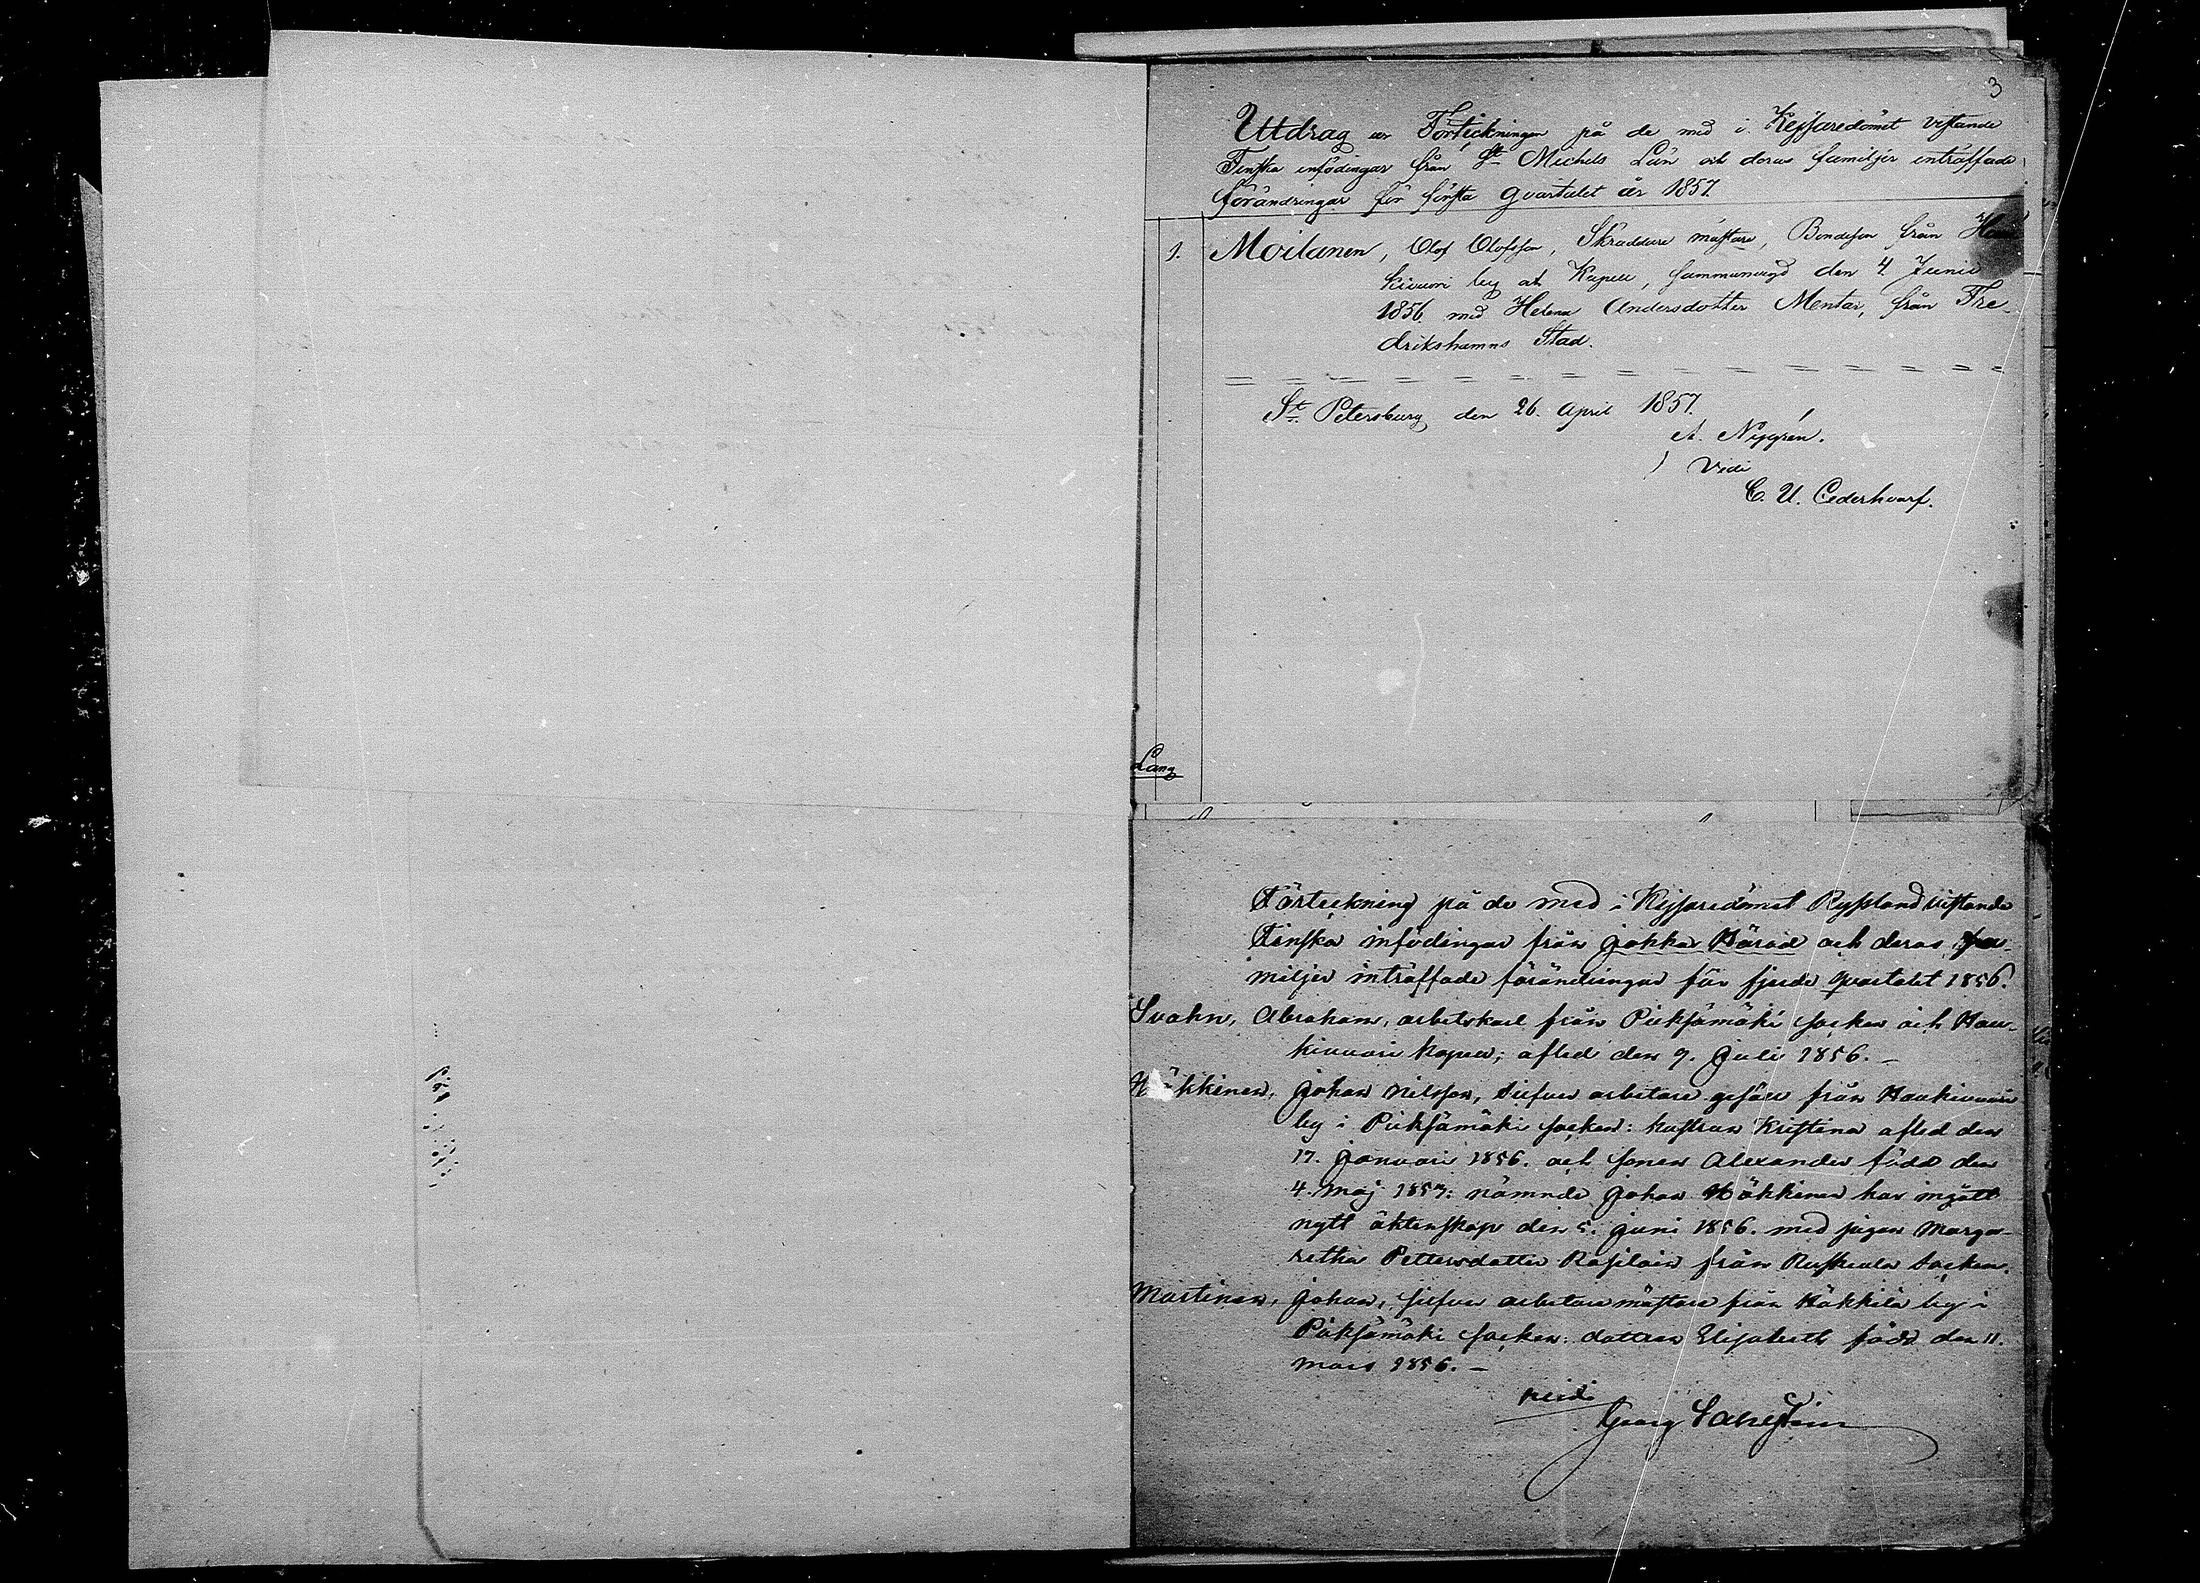 3
Utdrag ur Förteckningen på de med i Kejsaredömet vistande
Finska infödingar från St Michels Län och deras familjer inträffade
förändringar för första qvartalet år 1857.
1. Moilanen, Olof Olofsson, Skräddare mästare, Bondeson från Hau
kivuori by ok Kapell, sammanvigd den 4 Junii
1856. med Helena Andersdotter Mentar, från Fre-
drikshamns Stad.
St. Petersburg den 26. April 1857.
A. Nygrén.
Vidi
C. U. Cederhvarf.
Lang
Förteckning på de med i Kejsaredömet Ryssland vistande
Finska infödingar från Jokkas Härad och deras fa-
miljer inträffade förändringar för fjerde qvartalet 1856.
Svahn, Abraham, arbetskarl från Pieksämäki socken och Hau-
kivuori kapell; afled den 9. Juli 1856. –
Häkkinen, Johan Nilsson, Silfver arbetare gesäll från Haukivuori
by i Pieksämäki socken: hustrun Kristina afled den
17. Januari 1856. och sonen Alexander född den
4. Maj 1857: nämnde Johan Häkkinen har ingått
nytt äktenskap den 5. Juni 1856. med pigan Marga-
retha Pettersdotter Räsiläin från Ruskeala Socken.
Martinen, Johan, silfver arbetare mästare från Häkkilä by i
Pieksämäki socken: dottren Elisabeth född den 11.
Mars 1856. –
Vidi
Georg